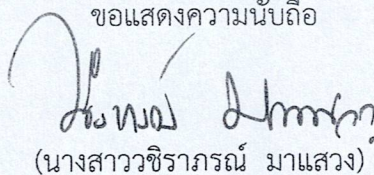 ขอแสดงความนับถือ
(นางสาววชิราภรณ์ มาแสวง)